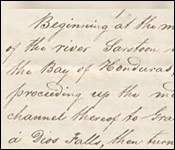 Beginning at the m
of the river Sarstoon
the Bay of Honduras,
proceeding up the m
channel thereof to Gra
á Dios Falls, then turn